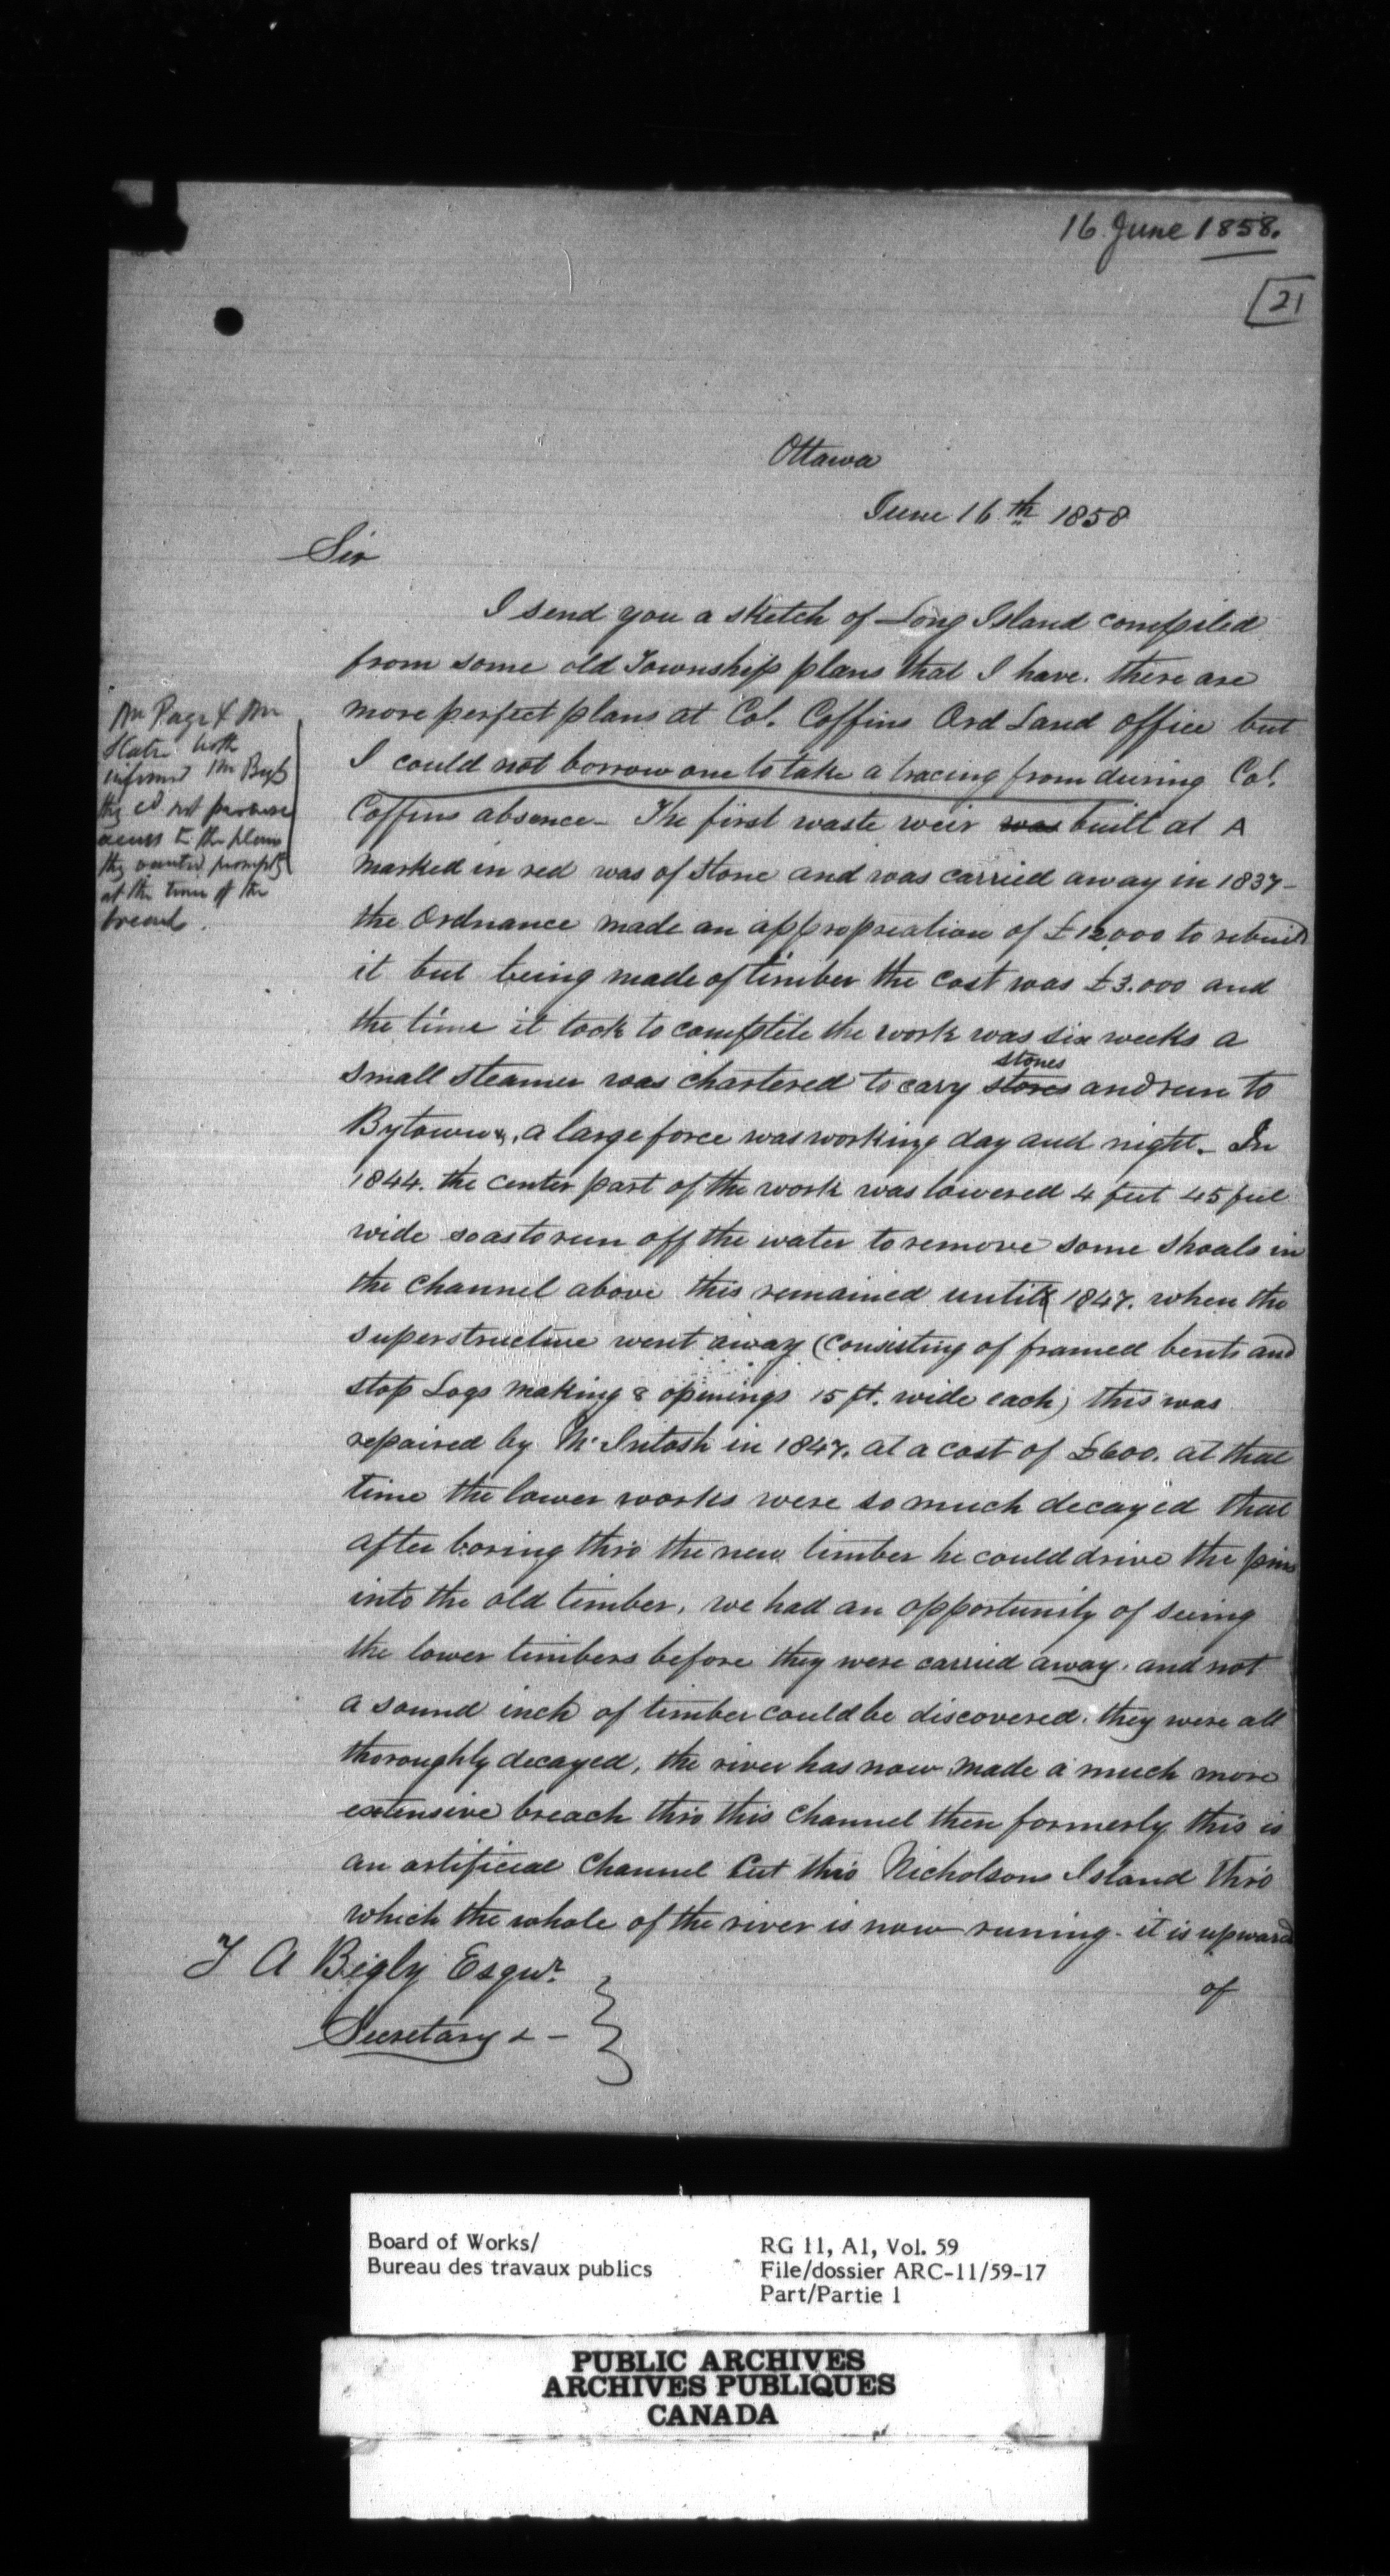 16 June 1858.
21
Ottawa
June 16th 1858
Sir
I send you a sketch of Long Island compiled
from some old Township plans that I have. there are
more perfect plans at Col. Coffins Ord Land office but
I could not borrow one to take a tracing from during Col.
Coffins absence - The first waste weir was built at A
marked in red was of Stone and was carried away in 1837 -
the Ordnance made an appropreation of £12,000 to rebuild
it but being made of timber the cost was £3.000 and
the time it took to complete the work was six weeks a
stones
small steamer was chartered to cary stores and run to
Bytown, a large force was working day and night. In
1844. the center part of the work was lowered 4 feet 45 feet
wide so as to run off the water to remove some shoals in
the channel above this remained until 1847. when the
superstructure went away (consisting of framed bents and
stop Logs making 8 openings 15 ft. wide each) this was
repaired by Mc.Intosh in 1847. at a cost of £600. at that
time the lower works were so much decayed that
after boring thro the new timber he could drive the pins
into the old timber. we had an opportunity of seeing
the lower timbers before they were carried away. and not
a sound inch of timber could be discovered. they were all
thoroughly decayed, the river has now made a much more
extensive breach thro this channel then formerly this is
an artificial channel cut thro Nicholsons Island thro
which the whole of the river is now runing - it is upward
of
T A Bigly Esqur.
Secretary & -
Mr Page & Mr
Slater both
informed Mr
they cd not procure
access to the plans
they wanted promptly
at the time of the
breach.
Board of Works/
Bureau des travaux publics
RG 11, A1, Vol. 59
File/dossier ARC-11/59-17
Part/Partie 1
PUBLIC ARCHIVES
ARCHIVES PUBLIQUES
CANADA